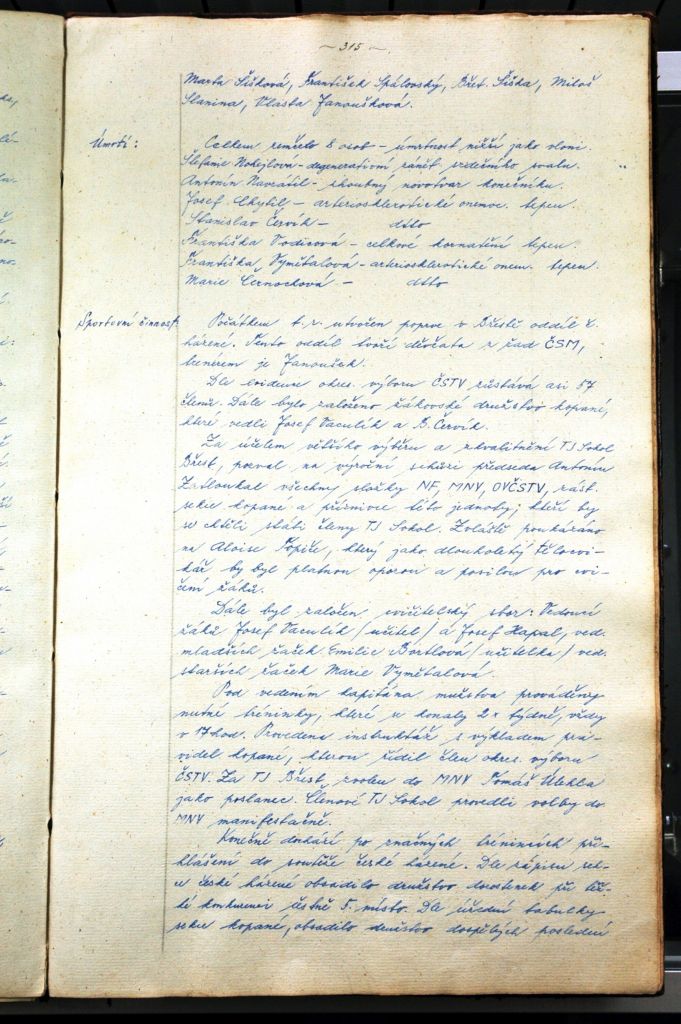 ~ 315 ~
Marta Šišková, František Spálovský, Břet. Šiška, Miloš
Slanina, Vlasta Janoušková.
Úmrtí: Celkem zemřelo 8 osob - úmrtnost nižší jako vloni.
Štefanie Nohejlová - degenerativní zánět srdečního svalu.
Antonín Navrátil - zhoubný novotvar konečníku.
Josef Chytil - arteriosklerotické onemoc. tepen.
Stanislav Červík - dtto
Františka Vodicová - celkové kornatění tepen.
Františka Vymětalová - arteriosklerotické onem. tepen.
Marie Černochová - dtto
Sportovní činnost: Počátkem t.r. utvořen poprve v Břestě oddíl č.
házené. Tento oddíl tvoří děvčata z řad ČSM,
trenérem je Janoušek.
Dle evidence okres. výboru ČSTV zůstává asi 57
členů. Dále bylo založeno žákovské družstvo kopané,
které vedli Josef Vaculík a B. Červík.
Za účelem většího výběru a zkvalitnění TJ Sokol
Břest, pozval na výroční schůzi předseda Antonín
Zatloukal všechny složky NF, MNV, OVČSTV, zást.
sekce kopané a příznivce této jednoty, kteří by
se chtěli státi členy TJ Sokol. Zvláště poukázáno
na Aloise Popiče, který jako dlouholetý tělocvi-
kář by byl platnou oporou a posilou pro cvi-
čení žáků.
Dále byl založen cvičitelský sbor: Vedoucí
žáků Josef Vaculík /učitel/ a Josef Hapal, ved.
mladších žaček Emilie Bortlová /učitelka/ ved.
starších žaček Marie Vymětalová.
Pod vedením kapitána mužstva prováděny
nutné tréninky, které se konaly 2x týdně, vždy
v 17 hod. Provedena instruktáž s výkladem pra-
videl kopané, kterou řídil člen okres. výboru
ČSTV. Za TJ Břest zvolen do MNV Tomáš Úlehla
jako poslanec. Členové TJ Sokol provedli volby do
MNV manifestačně.
Konečně dochází po značných trénincích při-
hlášení do soutěže české házené. Dle zápisu sek-
ce české házené obsadilo družstvo dorostenek při těž-
ké konkurenci čestné 5. místo. Dle úřední tabulky
sekce kopané, obsadilo družstvo dospělých poslední